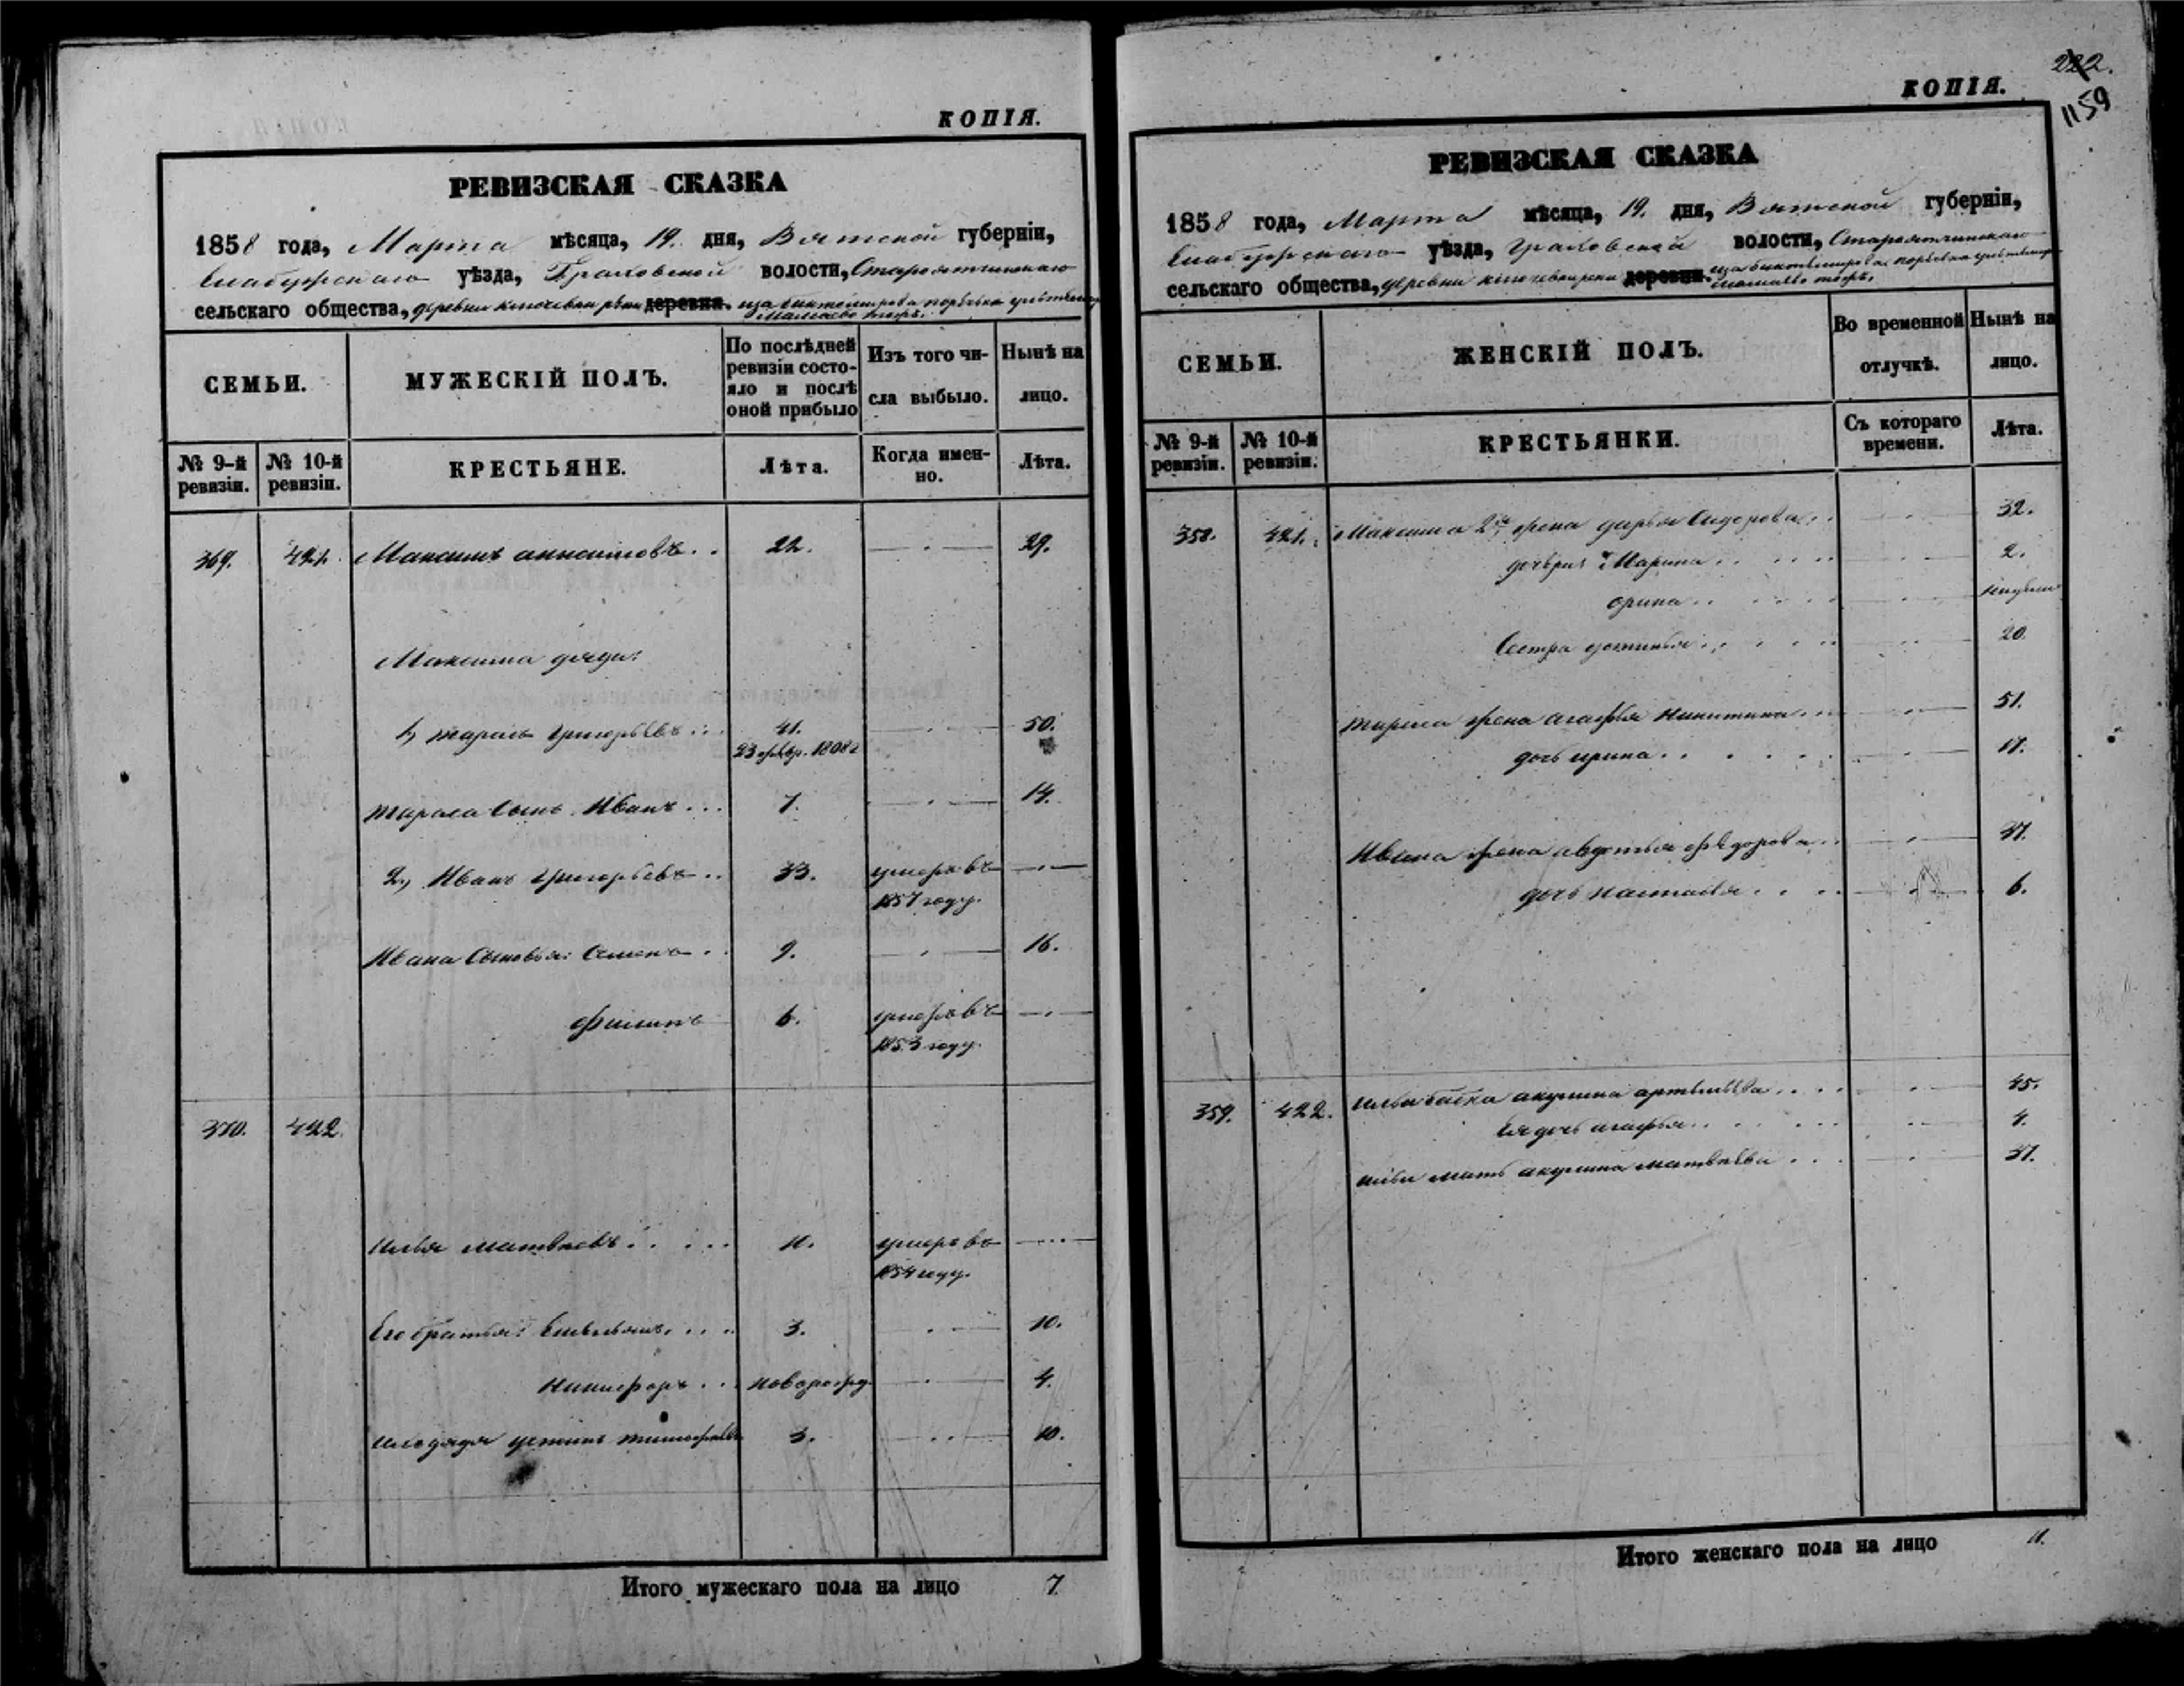 КОПІЯ.
РЕВИЗСКАЯ СКАЗКА
1858 года, Марта мѣсяца, 19. дня, Вятской губерніи,
Елабужскаго уѣзда, Граховской волости, Староятчинскаго
сельскаго общества, деревни деревни.
СЕМЬИ.
МУЖЕСКІЙ ПОЛЪ.
По послѣдней ревизіи состояло и послѣ оной прибыло
Изъ того числа выбыло.
Нынѣ на лицо.
№ 9-й ревизіи.
№ 10-й ревизіи.
КРЕСТЬЯНЕ.
Лѣта.
Когда именно.
Лѣта.
369. 421. Максимъ 22. 29.
Максима дяди:
1, тарасъ григорьевъ 41. 50.
23 1808
тараса сынъ Иванъ 7. 14.
2, Иванъ григорьевъ 33. умеръ въ
1857 году.
Ивана сыновья: Семенъ 9. 16.
филипъ 6. умеръ въ
1853 году.
370. 422.
илья матвѣевъ 11. умеръ въ
1854 году.
его братья: Емельянъ 3. 10.
никифоръ новорожд. 4.
дядя устинъ 3. 10.
Итого мужескаго пола на лицо 7
222.
1159
КОПІЯ.
РЕВИЗСКАЯ СКАЗКА
1858 года, Марта мѣсяца, 19. дня, Вятской губерніи,
Елабужскаго уѣзда, Граховской волости, Староятчинскаго
сельскаго общества, деревни деревни.
СЕМЬИ.
ЖЕНСКІЙ ПОЛЪ.
Во временной отлучкѣ.
Нынѣ на лицо.
№ 9-й ревизіи.
№ 10-й ревизіи.
КРЕСТЬЯНКИ.
Съ котораго времени.
Лѣта.
358. 421. Максима 2я жена дарья Сидорова 32.
дочери: Марина 2.
орина
Сестра устинья 20.
тараса жена агафья Никитина 51.
дочь ирина 17.
Ивана жена авдотья фѣдорова 37.
дочь настасья 6.
359. 422. ильи бабка акулина артемьева 45.
ея дочь агафья 4.
ильи мать акулина матвѣева 37.
Итого женскаго пола на лицо 11.